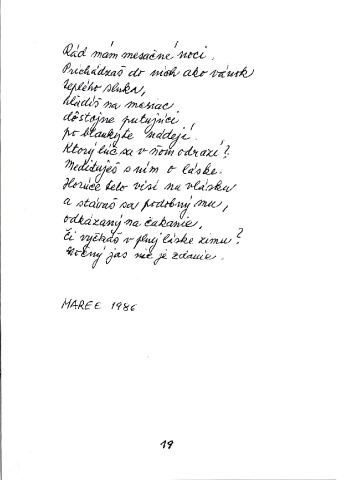 Rád mám mesačné noci.
Prichádzaš do nich ako vánok
teplého slnka,
hľadíš na mesiac
dôstojne putujúci
po blankyte nádejí.
Ktorý lúč sa v ňom odrazí?
Medituješ s ním o láske.
Horúce telo visí na vlásku
a stávaš sa podobný mu,
odkázaný na čakanie,
či vyčkáš v plnej láske zimu?
Nočný jas nie je zdanie.
MAREC 1986
19